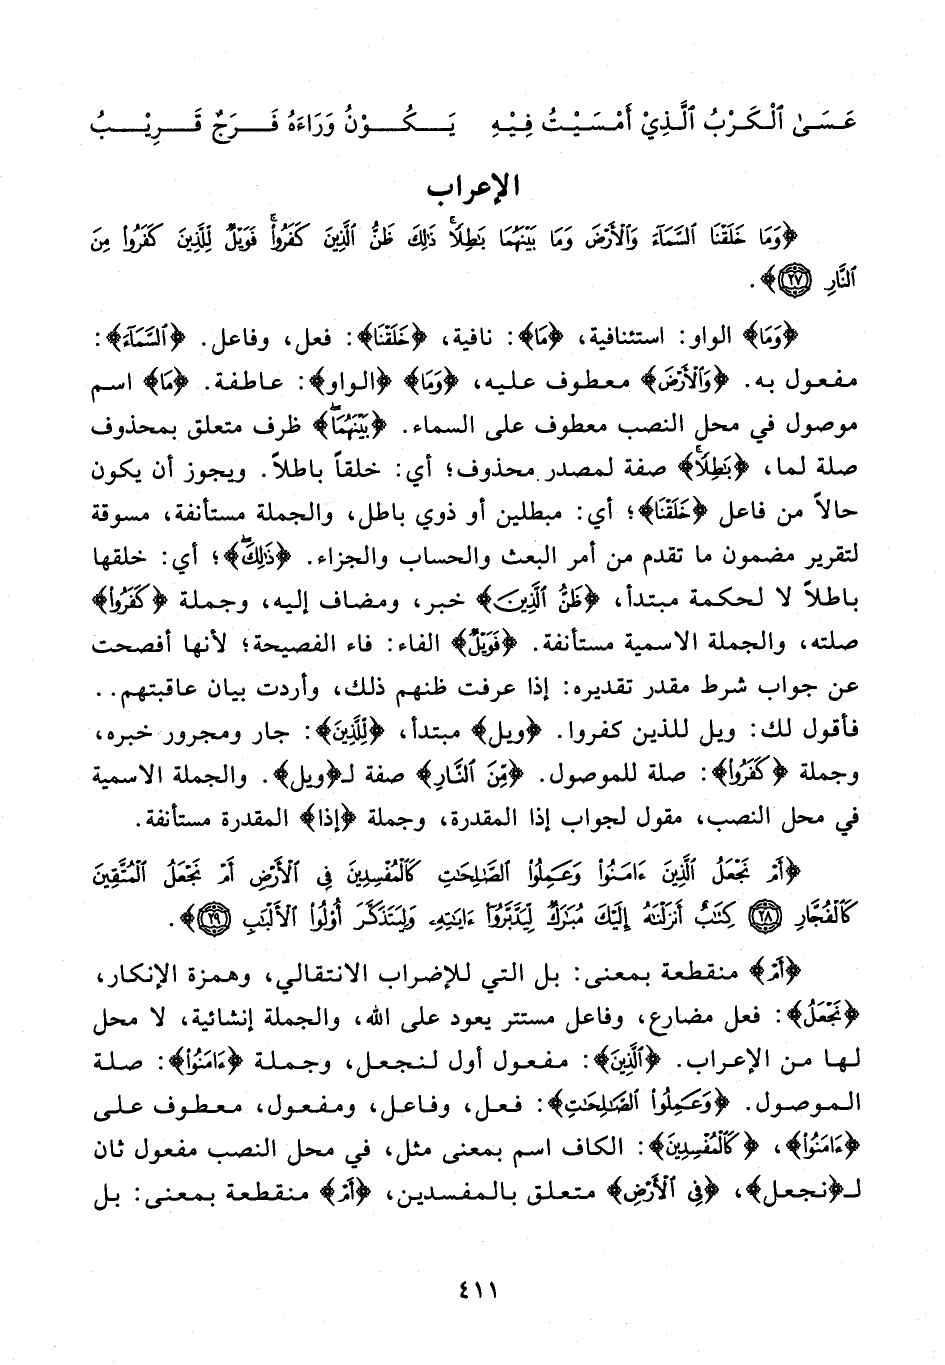 عَسَىٰ ٱلْكَرْبُ ٱلَّذِيْ أَمْسَيْتُ فِيْهِ يَكُوْنُ وَرَاءَهُ فَرَجٌ قَرِيْبُ
الإعراب
﴿وَمَا خَلَقْنَا ٱلسَّمَآءَ وَٱلْأَرْضَ وَمَا بَيْنَهُمَا بَٰطِلًاۚ ذَٰلِكَ ظَنُّ ٱلَّذِينَ كَفَرُوا۟ۚ فَوَيْلٌ لِّلَّذِينَ كَفَرُوا۟ مِنَ
ٱلنَّارِ ٢٧﴾.
﴿وَمَا﴾ الواو: استئنافية، ﴿مَا﴾: نافية، ﴿خَلَقْنَا﴾: فعل، وفاعل. ﴿ٱلسَّمَآءَ﴾:
مفعول به. ﴿وَٱلْأَرْضَ﴾ معطوف عليه، ﴿وَمَا﴾ ﴿الواو﴾: عاطفة. ﴿مَا﴾ اسم
موصول في محل النصب معطوف على السماء. ﴿بَيْنَهُمَاۖ﴾ ظرف متعلق بمحذوف
صلة لما، ﴿بَٰطِلًاۚ﴾ صفة لمصدر محذوف؛ أي: خلقاً باطلاً. ويجوز أن يكون
حالاً من فاعل ﴿خَلَقْنَا﴾؛ أي: مبطلين أو ذوي باطل، والجملة مستأنفة، مسوقة
لتقرير مضمون ما تقدم من أمر البعث والحساب والجزاء. ﴿ذَٰلِكَۖ﴾؛ أي: خلقها
باطلاً لا لحكمة مبتدأ، ﴿ظَنُّ ٱلَّذِينَ﴾ خبر، ومضاف إليه، وجملة ﴿كَفَرُوا۟﴾
صلته، والجملة الاسمية مستأنفة. ﴿فَوَيْلٌ﴾ الفاء: فاء الفصيحة؛ لأنها أفصحت
عن جواب شرط مقدر تقديره: إذا عرفت ظنهم ذلك، وأردت بيان عاقبتهم..
فأقول لك: ويل للذين كفروا. ﴿ويل﴾ مبتدأ، ﴿لِّلَّذِينَ﴾: جار ومجرور خبره،
وجملة ﴿كَفَرُوا۟﴾: صلة للموصول. ﴿مِّنَ ٱلنَّارِ﴾ صفة لـ﴿ويل﴾. والجملة الاسمية
في محل النصب، مقول لجواب إذا المقدرة، وجملة ﴿إذا﴾ المقدرة مستأنفة.
﴿أَمْ نَجْعَلُ ٱلَّذِينَ ءَامَنُوا۟ وَعَمِلُوا۟ ٱلصَّٰلِحَٰتِ كَٱلْمُفْسِدِينَ فِى ٱلْأَرْضِ أَمْ نَجْعَلُ ٱلْمُتَّقِينَ
كَٱلْفُجَّارِ ٢٨ كِتَٰبٌ أَنزَلْنَٰهُ إِلَيْكَ مُبَٰرَكٌ لِّيَدَّبَّرُوٓا۟ ءَايَٰتِهِۦ وَلِيَتَذَكَّرَ أُو۟لُوا۟ ٱلْأَلْبَٰبِ ٢٩﴾.
﴿أَمْ﴾ منقطعة بمعنى: بل التي للإضراب الانتقالي، وهمزة الإنكار،
﴿نَجْعَلُ﴾: فعل مضارع، وفاعل مستتر يعود على الله، والجملة إنشائية، لا محل
لها من الإعراب. ﴿ٱلَّذِينَ﴾: مفعول أول لنجعل، وجملة ﴿ءَامَنُوا۟﴾: صلة
الموصول. ﴿وَعَمِلُوا۟ ٱلصَّٰلِحَٰتِ﴾: فعل، وفاعل، ومفعول، معطوف على
﴿ءَامَنُوا۟﴾، ﴿كَٱلْمُفْسِدِينَ﴾: الكاف اسم بمعنى مثل، في محل النصب مفعول ثان
لـ﴿نجعل﴾، ﴿فِى ٱلْأَرْضِ﴾ متعلق بالمفسدين، ﴿أَمْ﴾ منقطعة بمعنى: بل
٤١١